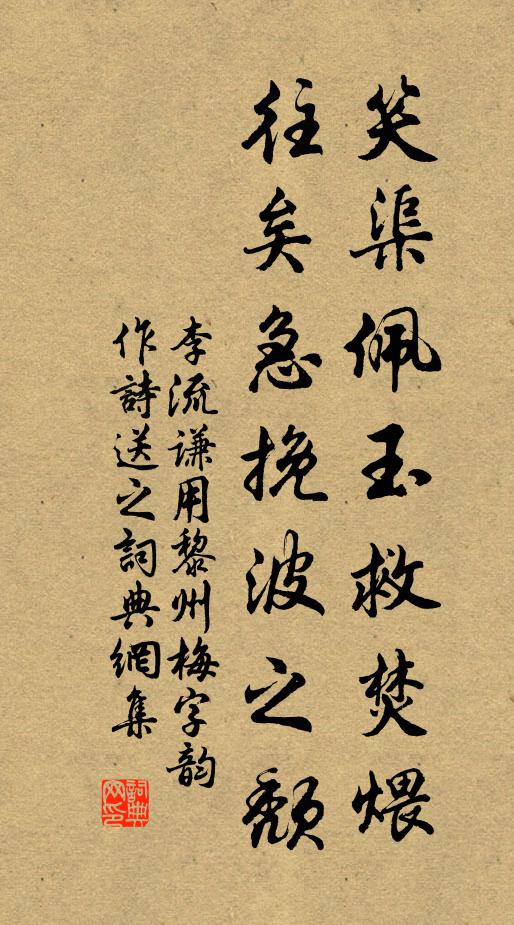 笑渠佩玉救焚煨
往矣急挽波之頹
李流謙用黎州梅字韵
作詩送之詞典網集
詞典网印